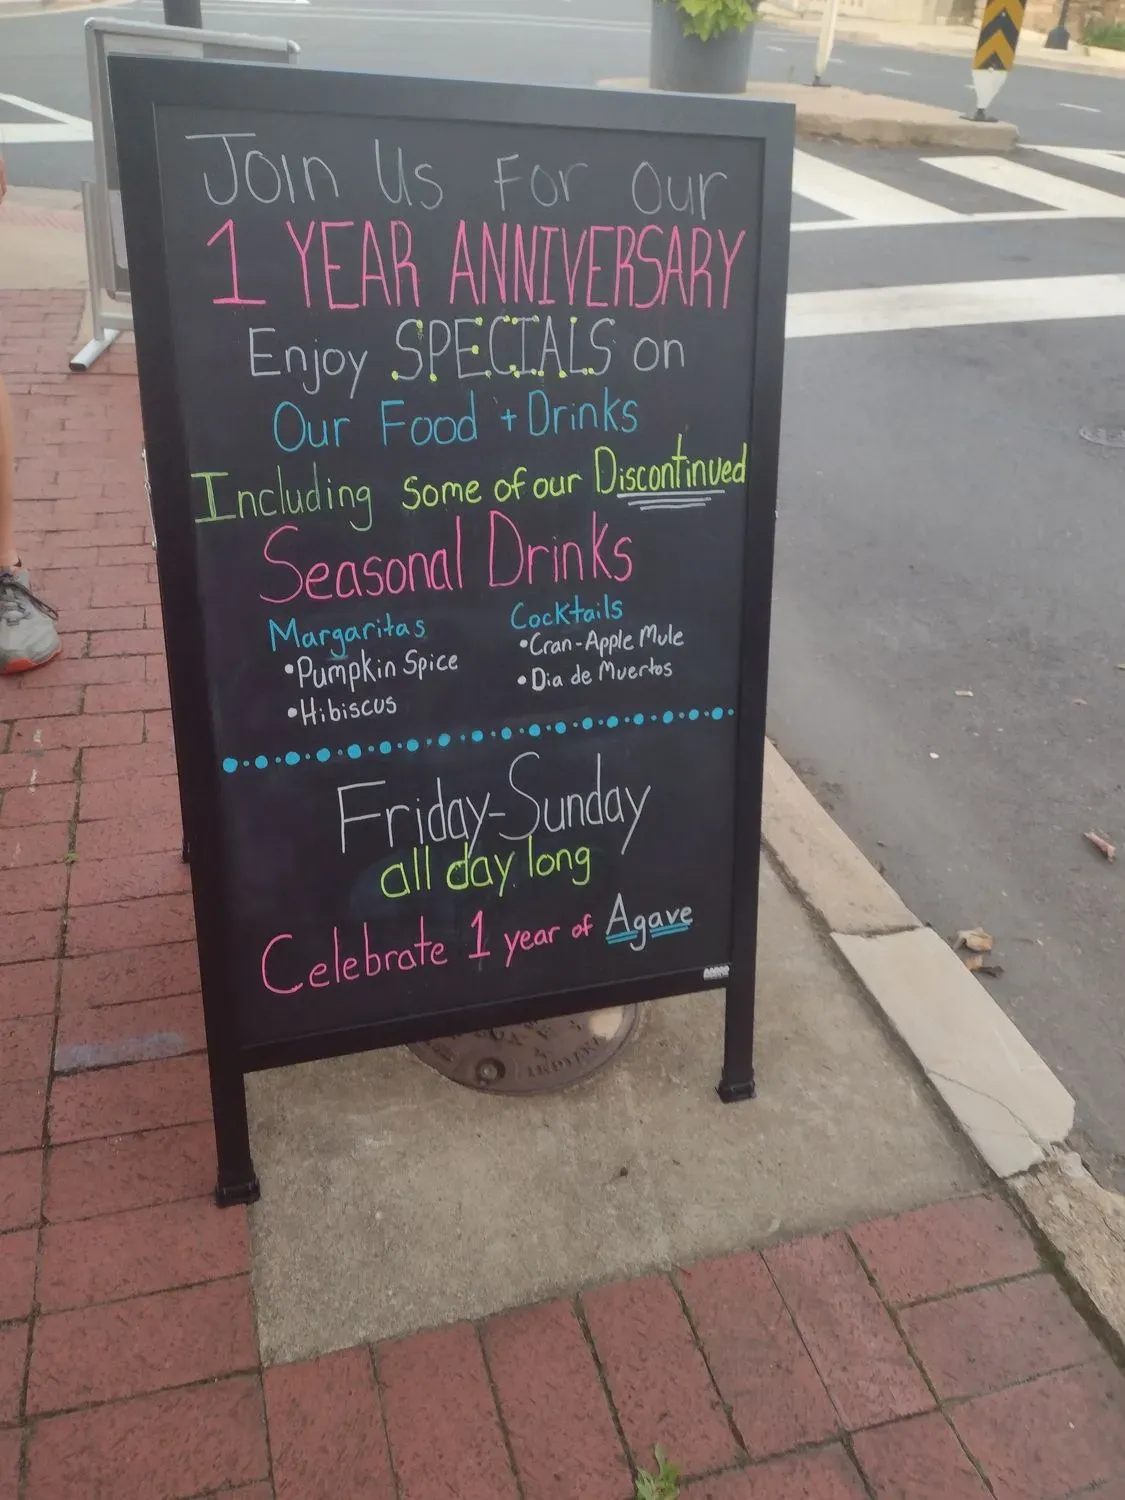 Join Us For Our
1 YEAR ANNIVERSARY
Enjoy SPECIALS on
Our Food + Drinks
Including Some of our Discontinued
Seasonal Drinks
Margaritas
• Pumpkin Spice
• Hibiscus
Cocktails
• Cran-Apple Mule
• Dia de Muertos
Friday-Sunday
all day long
Celebrate 1 year of Agave